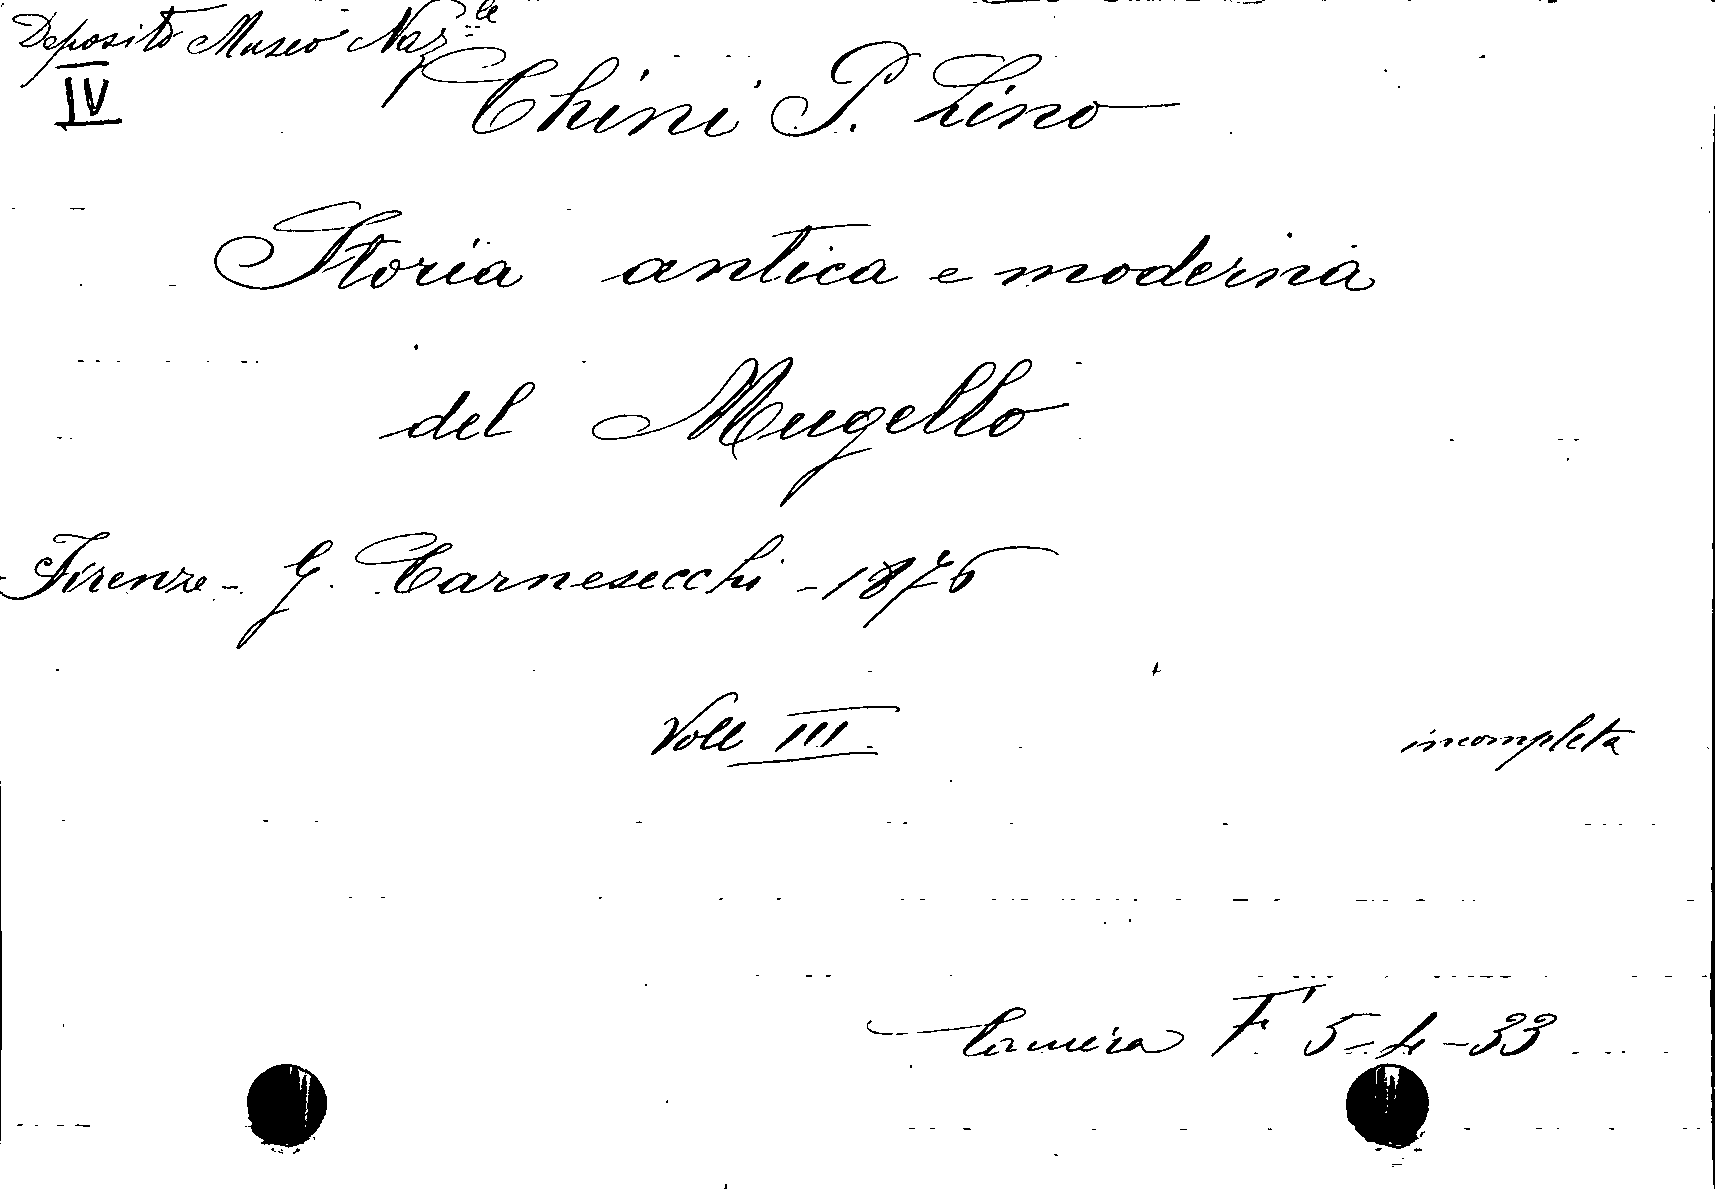 Deposito Museo Naz.le
IV
Chini P. Lino
Storia antica e moderna
del Mugello
Firenze - G. Carnesecchi - 1876
Voll III.
incompleta
Camera F' 5-4-33